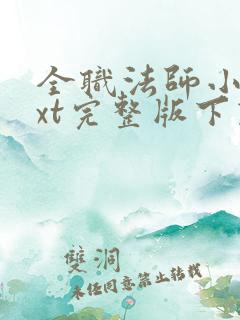 全職法師小
xt完整版下
雙洞
未经同意禁止转载